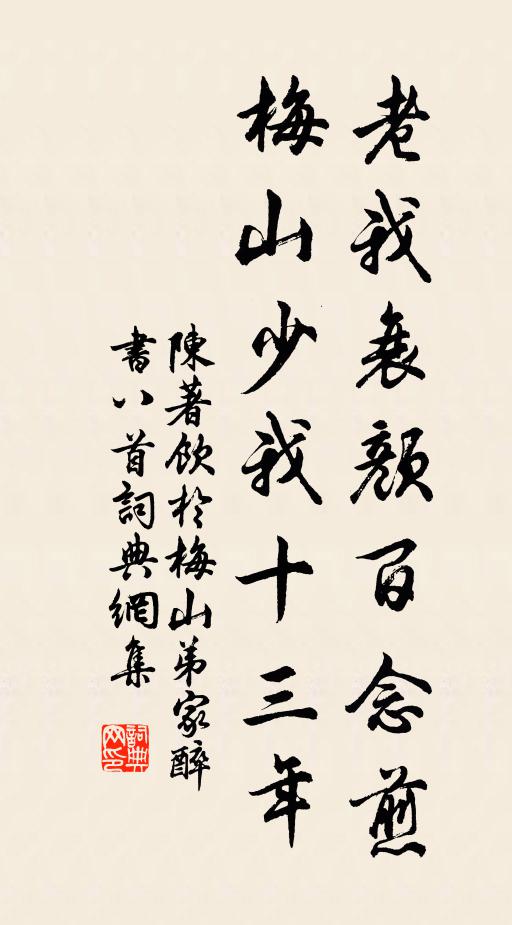 老我衰顔百念煎
梅山少我十三年
陳著飲於梅山弟家醉
書八首詞典網集
詞典
网印